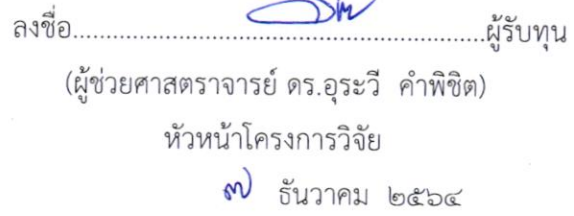 ลงชื่อ......................................................ผู้รับทุน
(ผู้ช่วยศาสตราจารย์ ดร.อุระวี คำพิชิต)
หัวหน้าโครงการวิจัย
๗ ธันวาคม ๒๕๖๔